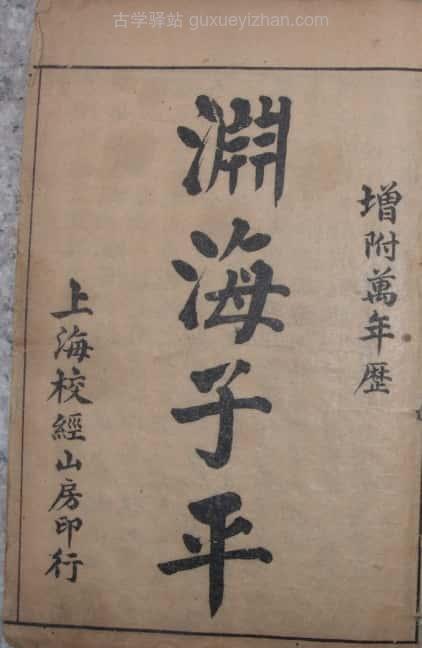 古学驿站 guxueyizhan.com
增附萬年歷
淵海子平
上海校經山房印行